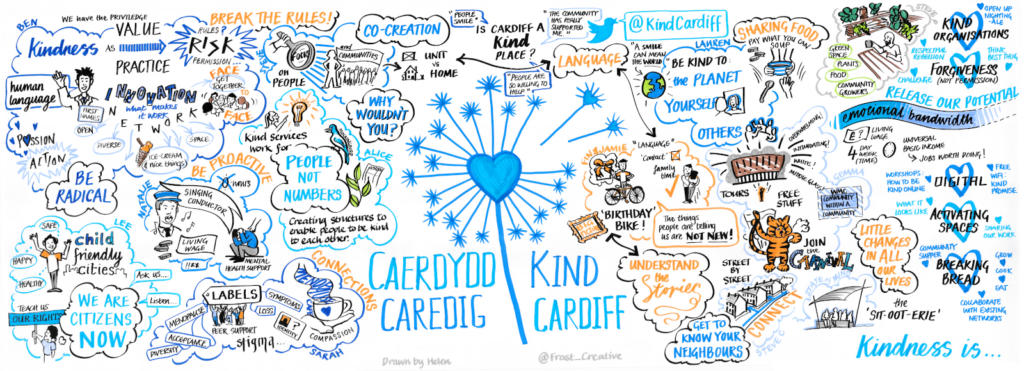 BEN
WE HAVE THE PRIVILEGE
Kindness
AS
VALUE
PRACTICE
BREAK THE RULES!
RULES?
RISK
PERMISSION...
human
language
FIRST
NAMES
OPEN
INNOVATION
what makes
it work
NETWORK
DIVERSE
SPACE
ICE-CREAM
& nice things
FACE
GET
TOGETHER
TO
FACE
PASSION
ACTION
BE
RADICAL
BE
PROACTIVE
FOCUS
ON
PEOPLE
COMMUNITIES
CO-CREATION
"PEOPLE
SMILE"
UNIT
vs
HOME
WHY
WOULDN'T
YOU?
Kind services
work for
PEOPLE
NOT
NUMBERS
ALICE
Creating structures to
enable people to be kind
to each other.
SINGING
CONDUCTOR
LIVING
WAGE
MENTAL
HEALTH SUPPORT
LEE
SAFE
HAPPY
HEALTHY
child
friendly
cities
Ask us...
Listen...
TEACH US
OUR RIGHTS
WE ARE
CITIZENS
NOW
LABELS
MENOPAUSE
ACCEPTANCE
DIVERSITY
PEER SUPPORT
stigma...
SYMPTOMS
LOSS
IDENTITY
COMPASSION
SARAH
CONNECTIONS
IS CARDIFF A
KIND
PLACE?
"THE COMMUNITY
HAS REALLY
SUPPORTED
ME"
"PEOPLE ARE
SO WILLING TO
HELP"
@KindCardiff
LANGUAGE
"A SMILE
CAN MEAN
THE WORLD"
LAUREN
BE KIND TO
the PLANET
YOURSELF
OTHERS
SHARING FOOD
PAY WHAT YOU CAN
SOUP
CAERDYDD
CAREDIG
KIND
CARDIFF
Drawn by Helen
@Frost_Creative
"LANGUAGE"
'Contact'
family
time
'BIRTHDAY'
BIKE!
The things
people are telling
us are NOT NEW!
UNDERSTAND
the
Stories
OVERWHELMING!
INTIMIDATING!
WHITE!
MIDDLE CLASS!
TOURS
FREE
STUFF
GEMMA
WMC
COMMUNITY
WITHIN A
COMMUNITY
JOIN
the
CARNIVAL
STREET
BY
STREET
CONNECT
STEVE
GET TO
KNOW YOUR
NEIGHBOURS
the
'SIT-OOT-ERIE'
LITTLE
CHANGES
IN ALL
OUR
LIVES
GREEN
SPACE
PLANTS
FOOD
COMMUNITY
GROWERS
KIND
ORGANISATIONS
OPEN UP
NIGHTING-
ALE
RESPECTFUL
REBELLION
THINK
BEST THING
FORGIVENESS
(NOT PERMISSION)
CHALLENGE
RELEASE OUR POTENTIAL
emotional bandwidth
LIVING
WAGE
4
DAY
WEEK
(TIME)
UNIVERSAL
BASIC INCOME
JOBS WORTH DOING!
WORKSHOPS:
HOW TO BE
KIND ONLINE
DIGITAL
FREE
WIFI
KIND
PROMISE
WHAT IT
LOOKS LIKE
ACTIVATING
SPACES
SHARING
OUR WORK
COMMUNITY
SUPPER
BREAKING
BREAD
GROW
COOK
EAT
COLLABORATE
WITH EXISTING
NETWORKS
Kindness is...